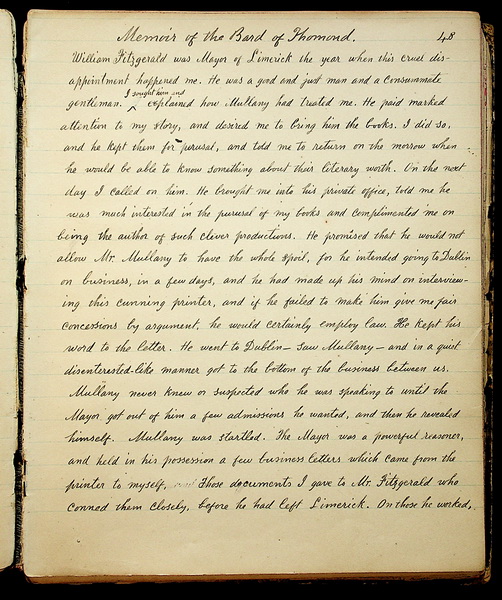 Memoir of the Bard of Thomond. 48
William Fitzgerald was Mayor of Limerick the year when this cruel dis-
appointment happened me. He was a good and just man and a consummate
gentleman. ^ I sought him and explained how Mullany had treated me. He paid marked
attention to my story, and desired me to bring him the books. I did so,
and he kept them for perusal, and told me to return on the morrow when
he would be able to know something about their literary worth. On the next
day I called on him. He brought me into his private office, told me he
was much interested in the perusal of my books and complimented me on
being the author of such clever productions. He promised that he would not
allow Mr. Mullany to have the whole spoil, for he intended going to Dublin
on business, in a few days, and he had made up his mind on interview-
ing this cunning printer, and if he failed to make him give me fair
concessions by argument, he would certainly employ law. He kept his
word to the letter. He went to Dublin — saw Mullany — and in a quiet
disinterested-like manner got to the bottom of the business between us.
Mullany never knew or suspected who he was speaking to until the
Mayor got out of him a few admissions he wanted, and then he revealed
himself. Mullany was startled. The Mayor was a powerful reasoner,
and held in his possession a few business letters which came from the
printer to myself, and Those documents I gave to Mr. Fitzgerald who
conned them closely, before he had left Limerick. On those he worked,